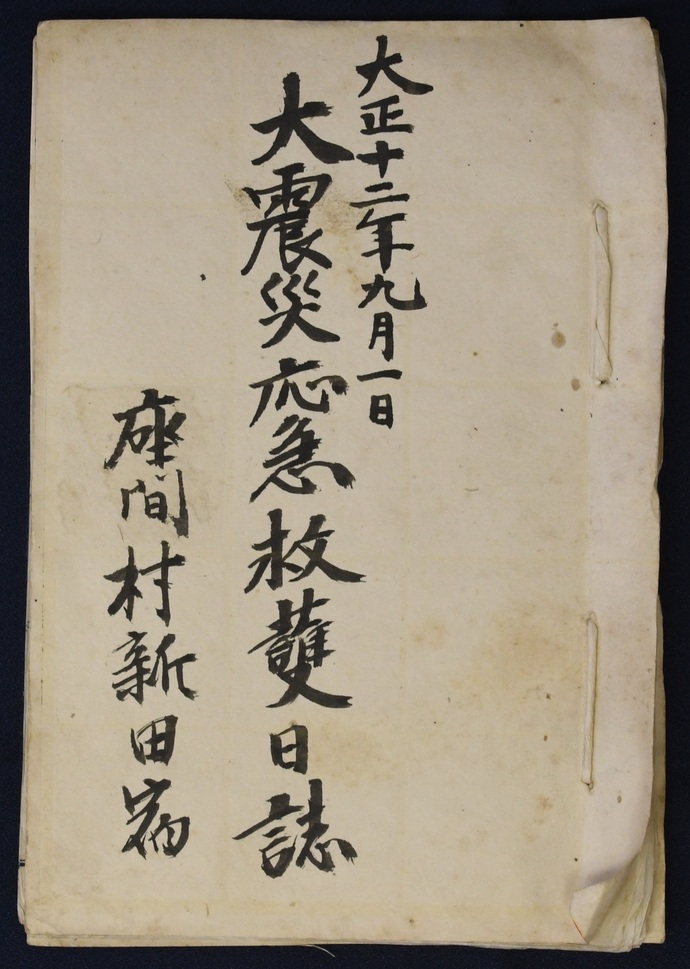 大正十二年九月一日
大震災応急救護日誌
座間村新田宿